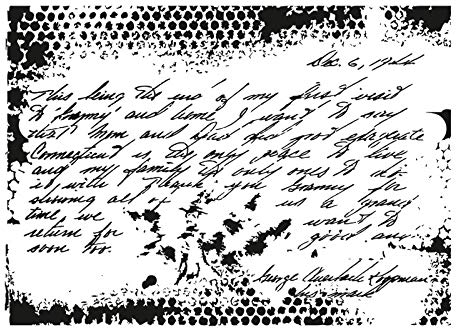 Dec. 6, 1924
This being the end of my first visit
to Granny and home I want to say
that Mom and Dad did not exaggerate
Connecticut is the only place to live
and my family the only ones to do
it with Thank you Granny for
showing all of us a grand
time, we want to
return for good and
soon too.
George